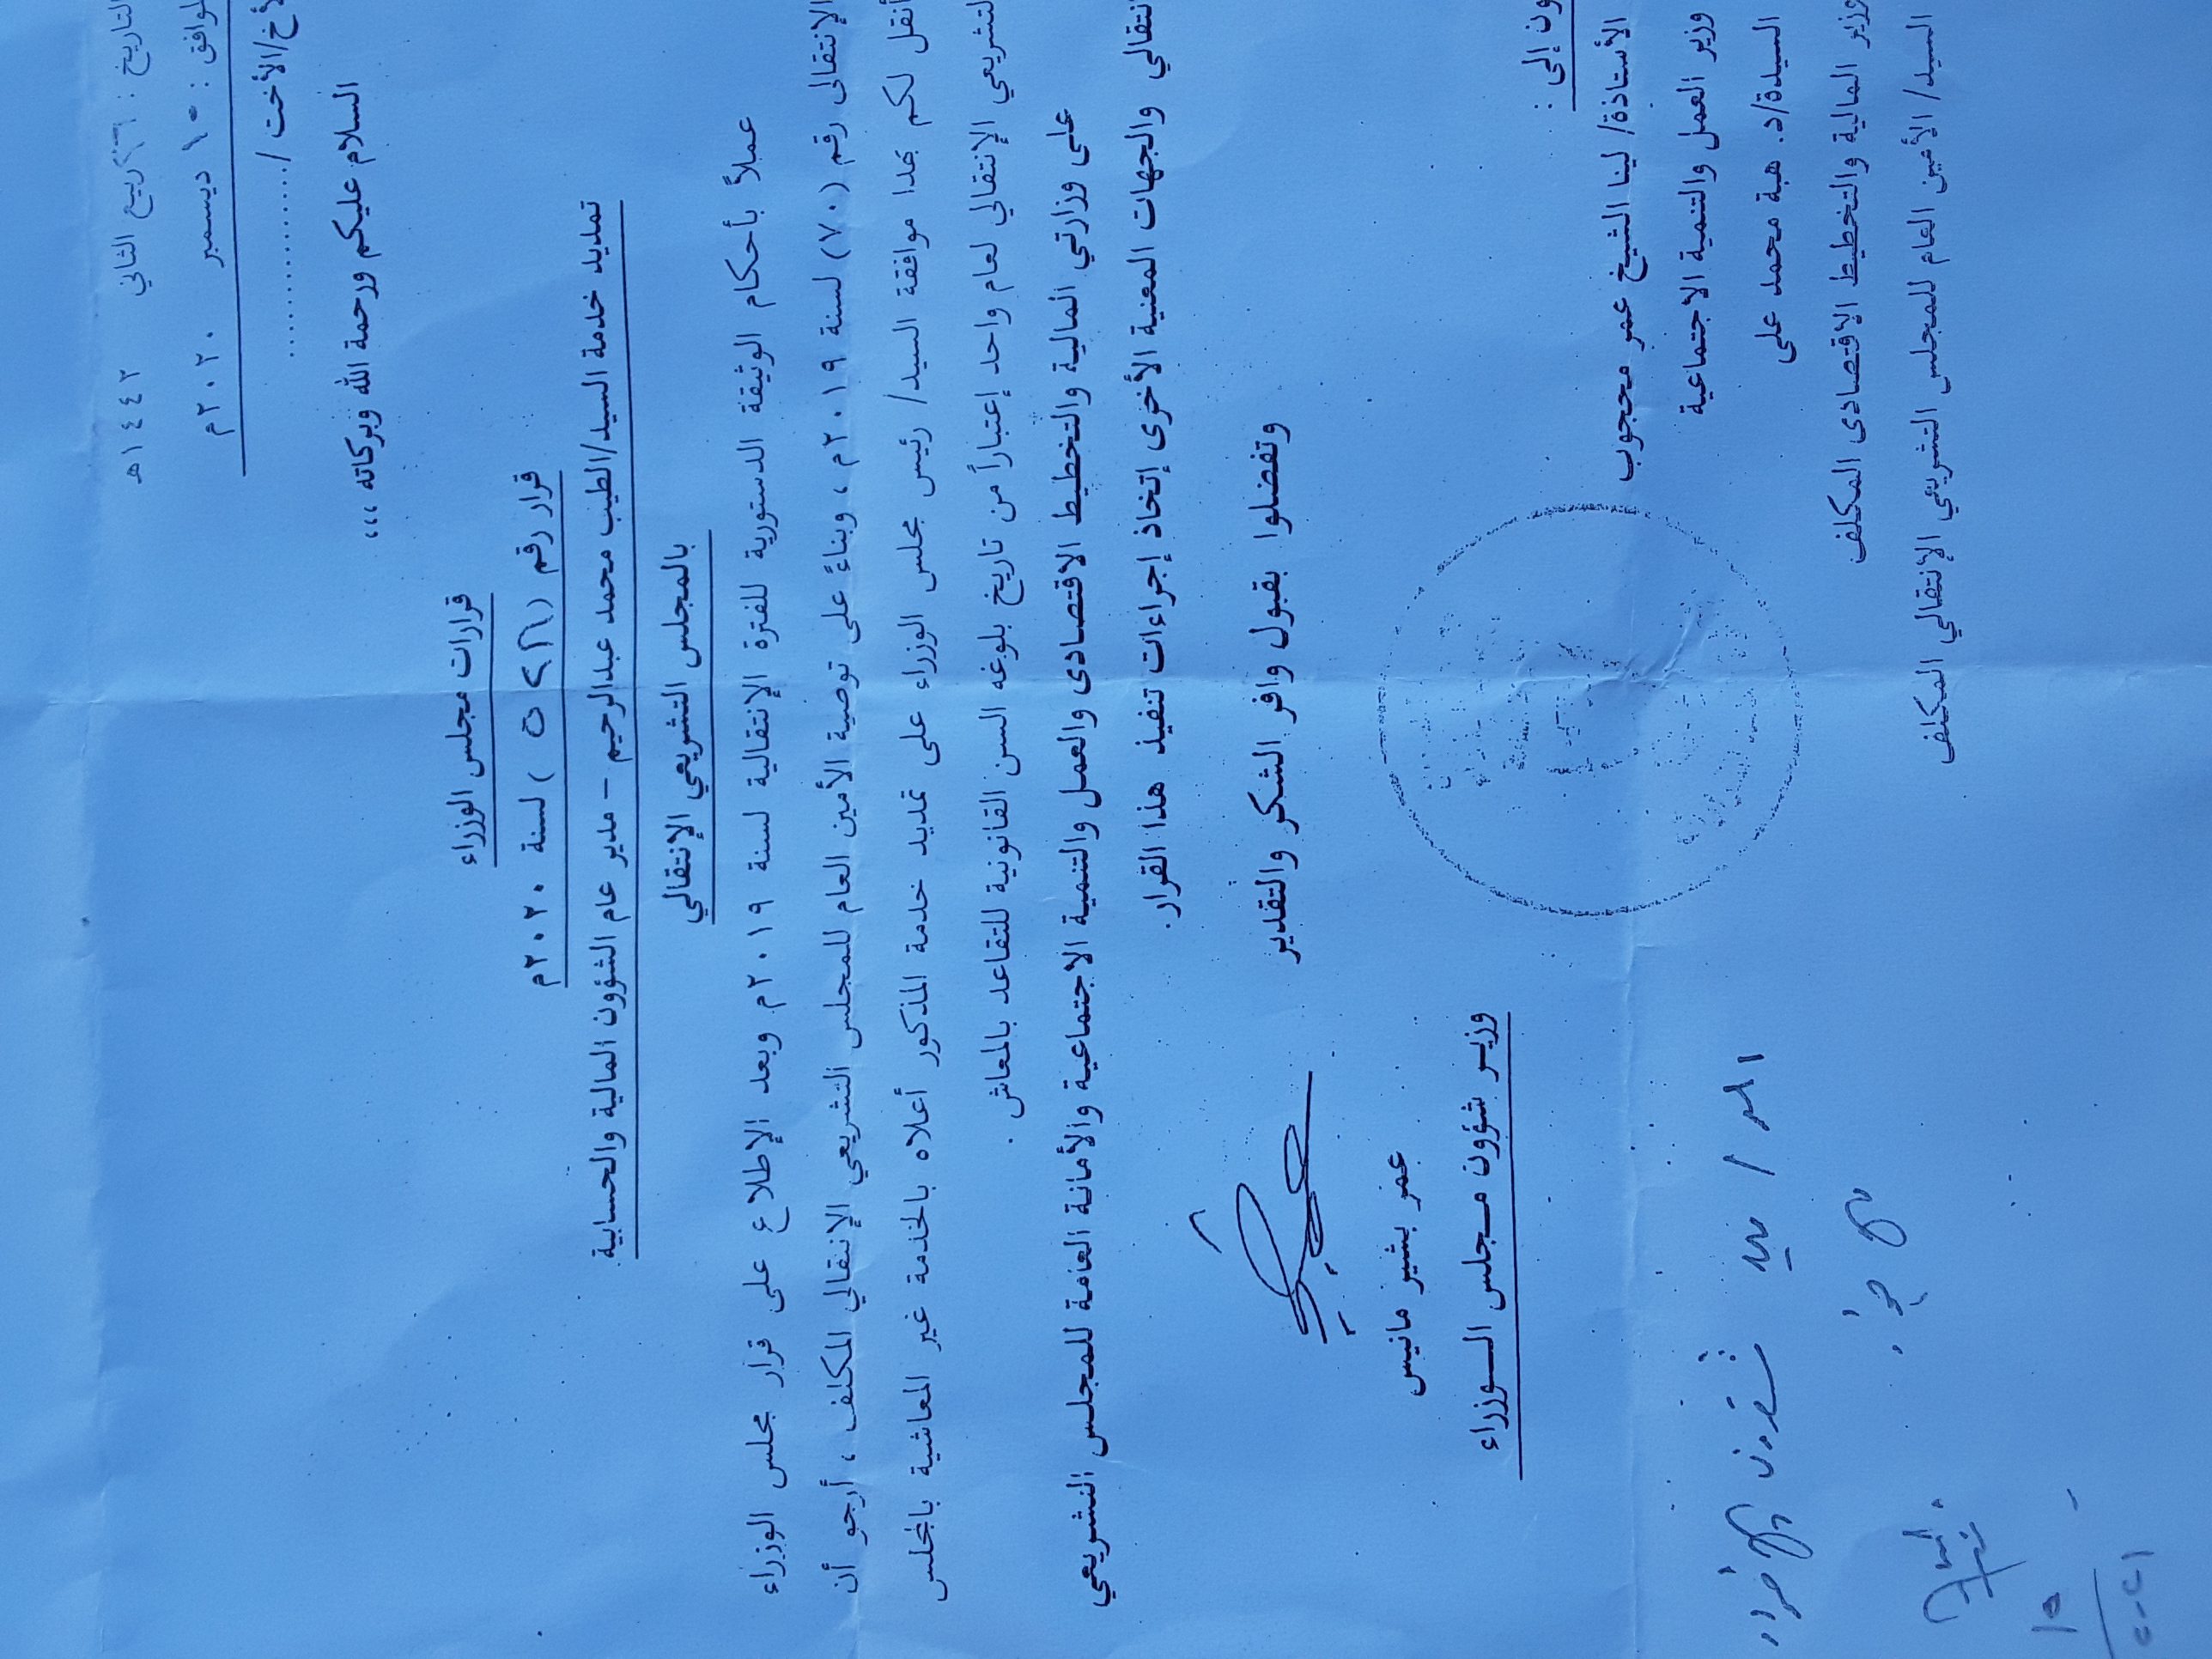 التاريخ : ربيع الثاني ١٤٤٢هـ
الموافق : ١٥ ديسمبر ٢٠٢٠م
الأخ/الأخت /..................
السلام عليكم ورحمة الله وبركاته ،،،
قرارات مجلس الوزراء
قرار رقم ( ) لسنة ٢٠٢٠م
تمديد خدمة السيد/الطيب محمد عبدالرحيم – مدير عام الشؤون المالية والحسابية
بالمجلس التشريعي الإنتقالي
عملاً بأحكام الوثيقة الدستورية للفترة الإنتقالية لسنة ٢٠١٩م وبعد الإطلاع على قرار مجلس الوزراء
الإنتقالى رقم (٧٠) لسنة ٢٠١٩م ، وبناءً على توصية الأمين العام للمجلس التشريعي الإنتقالي المكلف ، أرجو أن
أنقل لكم بهذا موافقة السيد/ رئيس مجلس الوزراء على تمديد خدمة المذكور أعلاه بالخدمة غير المعاشية بالمجلس
التشريعي الإنتقالي لعام واحد إعتباراً من تاريخ بلوغه السن القانونية للتقاعد بالمعاش .
على وزارتي المالية والتخطيط الاقتصادى والعمل والتنمية الاجتماعية والأمانة العامة للمجلس التشريعي
الإنتقالي والجهات المعنية الأخرى إتخاذ إجراءات تنفيذ هذا القرار.
وتفضلوا بقبول وافر الشكر والتقدير
عمر بشير مانيس
وزيـر شؤون مـجلس الـوزراء
إلى :
الأستاذة/ لينا الشيخ عمر محجوب
وزير العمل والتنمية الاجتماعية
السيدة/د. هبة محمد على
وزير المالية والتخطيط الاقتصادى المكلف
السيد/ الأمين العام للمجلس التشريعي الإنتقالي المكلف